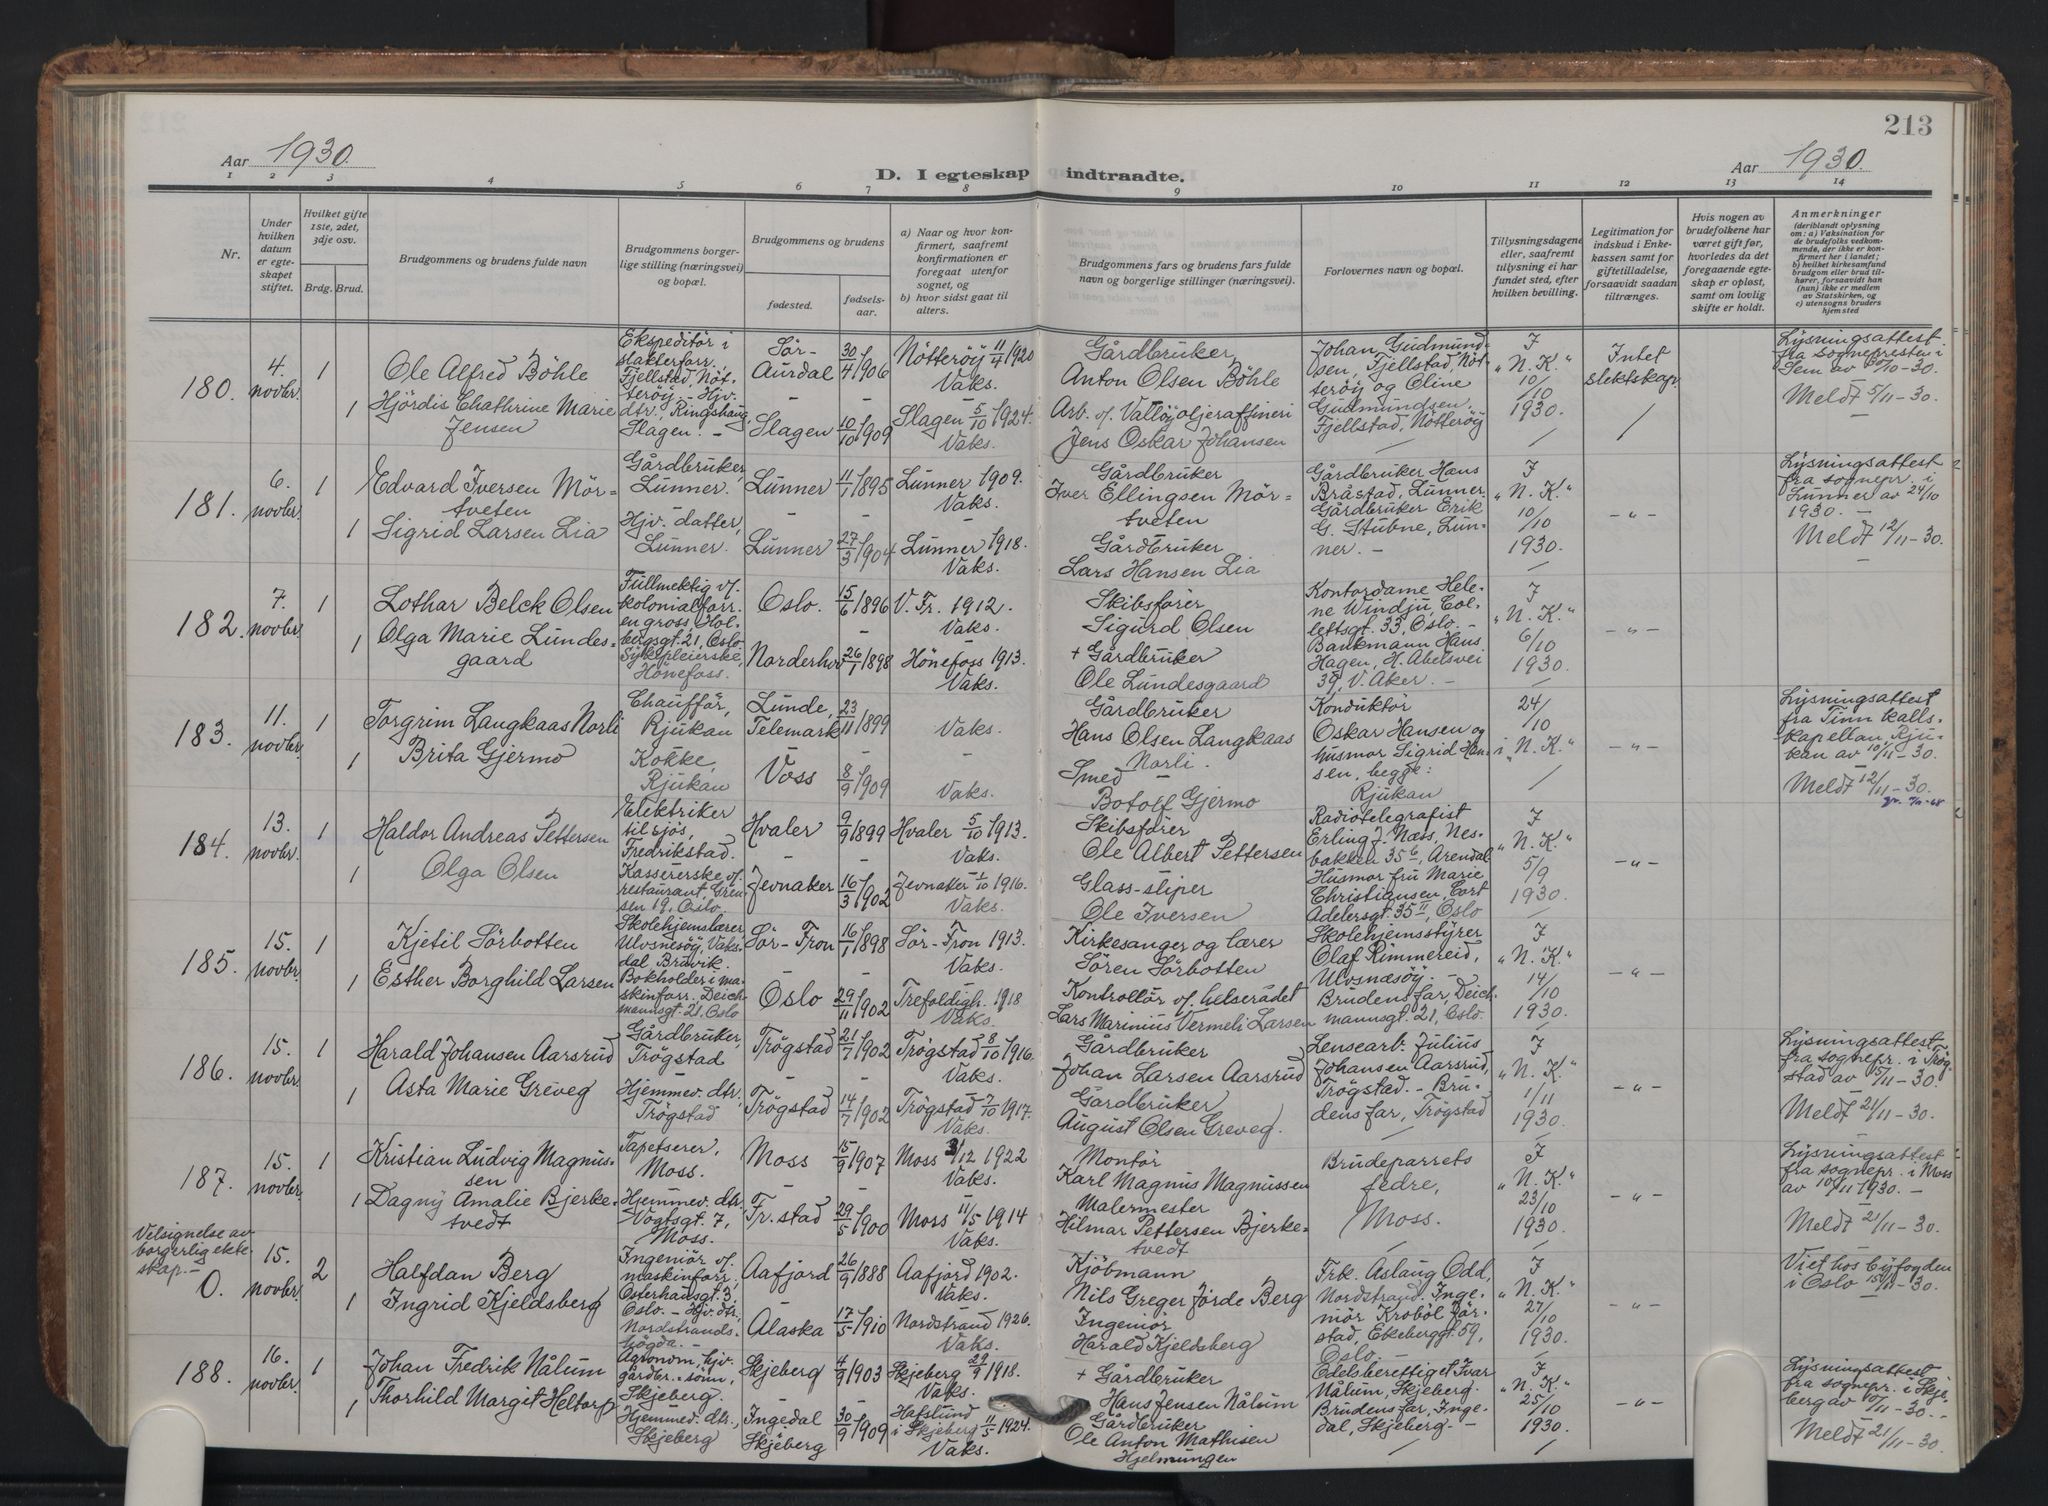 213
Aar 1930.
Aar 1930
D. I egteskap indtraadte.
1 2 3 4 5 6 7 8 9 10 11 12 13 14
Nr.
Under hvilken datum er egteskapet stiftet.
Hvilket gifte 1ste, 2det, 3dje osv.
Brdg. Brud.
Brudgommens og brudens fulde navn
Brudgommens borgerlige stilling (næringsvei) og bopæl.
Brudgommens og brudens
fødested.
fødselsaar.
a) Naar og hvor konfirmert, saafremt konfirmationen er foregaat utenfor sognet, og
b) hvor sidst gaat til alters.
Brudgommens fars og brudens fars fulde navn og borgerlige stillinger (næringsvei).
Forlovernes navn og bopæl.
Tillysningsdagene eller, saafremt tillysning ei har fundet sted, efter hvilken bevilling.
Legitimation for indskud i Enkekassen samt for giftetilladelse, forsaavidt saadan tiltrænges.
Hvis nogen av brudefolkene har været gift før, hvorledes da det foregaaende egteskap er opløst, samt om lovlig skifte er holdt.
Anmerkninger
(deriblandt oplysning om: a) Vaksination for de brudefolks vedkommende, der ikke er konfirmert her i landet; b) hvilket kirkesamfund brudgom eller brud tilhører, forsaavidt han (hun) ikke er medlem av Statskirken, og c) utensogns bruders hjemsted
180. 4. novbr. 1
Ole Alfred Böhle
Ekspeditör i slakterforr. Fjellstad, Nötteröy. -
Sör-Aurdal 30/4 1906
Nötteröy 11/4 1920 Vaks.
Gårdbruker Anton Olsen Böhle
Johan Gudmundsen, Fjellstad, Nötteröy og Oline Gudmundsen. Fjellstad, Nötteröy
I „N. K." 10/10 1930.
Intet slektskap
Lysningsattest fra sognepresten i Sem av 30/10-30.
Meldt 5/11-30.
1 Hjördis Chathrine Marie Jensen
Hjv. dtr. Ringshaug, Slagen. -
Slagen 10/10 1909
Slagen 5/10 1924. Vaks.
Arb. v. Vallöyoljeraffineri Jens Oskar Johansen
181. 6. novbr. 1
Edvard Iversen Mörtveten
Gårdbruker, Lunner.
Lunner 11/1 1895
Lunner 1909. Vaks.
Gårdbruker Iver Ellingsen Mörtveten
Gårdbruker Hans Bråstad, Lunner. Gårdbruker Erik G. Stubne, Lunner. -
I „N. K." 10/10 1930.
- " -
Lysningsattest fra sognepr. i Lunner av 24/10 1930. -
Meldt 12/11-30.
1 Sigrid Larsen Lia
Hjv. datter, Lunner.
Lunner 27/3 1904
Lunner 1918. Vaks.
Gårdbruker Lars Hansen Lia
182. 7. novbr. 1
Lothar Belck Olsen
Fullmektig v. kolonialforr. en gross, Holbergsgt. 21, Oslo.
Oslo. 15/6 1896
V. Fr. 1912. Vaks.
Skibsförer Sigurd Olsen
Kontordame Helene Windju, Collettsgt. 33, Oslo. - Bankmann Hans Hagen, H. Abelsvei 39, V. Aker. -
I „N. K." 6/10 1930.
- " -
1 Olga Marie Lundesgaard
Sykepleierske, Hönefoss.
Norderhov 26/1 1898
Hönefoss 1913. Vaks.
+ Gårdbruker Ole Lundesgaard
183. 11. novbr. 1
Torgrim Langkaas Norli
Chaufför, Rjukan
Lunde, Telemark 23/11 1899
Vaks.
Gårdbruker Hans Olsen Langkaas Norli.
Konduktör Oskar Hansen og husmor Sigrid Hansen, begge: Rjukan
24/10 i „N. K."
- " -
Lysningsattest fra Tinn kallskapellan, Rjukan av 10/11-30.
Meldt 12/11-30.
1 Brita Gjermo
Kokke, Rjukan
Voss 8/9 1909
Vaks.
Smed Botolf Gjermo
184. 13. novbr. 1
Haldor Andreas Pettersen
Elektriker til sjös, Fredrikstad.
Hvaler 9/9 1899
Hvaler 5/10 1913. Vaks.
Skibsförer Ole Albert Pettersen
Radiotelegrafist Erling J. Næss, Nesbakken 35 b, Arendal Husmor fru Marie Christiansen, Cort Adelersgt. 35 II, Oslo
I „N. K." 5/9 1930.
- " -
1 Olga Olsen
Kassererske v. restaurant, Grensen 19, Oslo.
Jevnaker 16/3 1902
Jevnaker 1/10 1916. Vaks.
Glass-sliper Ole Iversen
185. 15. novbr. 1
Kjetil Sörbotten
Skolehjemslærer, Ulvsnesöy, Vaksdal, Bruvik.
Sör-Fron 16/1 1898
Sör-Fron 1913. Vaks.
Kirkesanger og lærer Sören Sörbotten
Skolehjemsstyrer Olaf Rimmereid, Ulvsnæsöy. - Brudens far, Deichmannsgt. 21, Oslo.
I „N. K." 14/10 1930.
- " -
1 Esther Borghild Larsen
Bokholder i maskinforr. Deichmannsgt. 21, Oslo
Oslo 29/11 1902
Trefoldigh. 1918 Vaks.
Kontrollör v. helserådet Lars Marinius Vermeli Larsen
186. 15. novbr. 1
Harald Johansen Aarsrud
Gårdbruker, Trögstad
Trögstad 21/7 1902
Trögstad 8/10 1916. Vaks.
Gårdbruker Johan Larsen Aarsrud
Lensearb. Julius Johansen Aarsrud, Trögstad. - Brudens far, Trögstad
I „N. K." 1/11 1930.
- " -
Lysningsattest fra sognepr. i Trögstad av 15/11-30.
Meldt 21/11-30.
1 Asta Marie Greveg
Hjemmev. dtr., Trögstad
Trögstad 14/7 1902
Trögstad 7/10 1917. Vaks.
Gårdbruker August Olsen Greveg.
187. 15. novbr. 1
Kristian Ludvig Magnussen
Tapetserer, Moss.
Moss 15/9 1907
Moss 3/12 1922 Vaks.
Montör Karl Magnus Magnussen
Brudeparrets fedre, Moss.
I „N. K." 23/10 1930.
- " -
Lysningsattest fra sognepr. i Moss av 10/11 1930. -
Meldt 21/11-30.
1 Dagny Amalie Bjerketvedt
Hjemmev. dtr., Vogtsgt. 7, Moss.
Fr.stad 29/5 1900
Moss 11/5 1914 Vaks.
Malermester Hilmar Pettersen Bjerketvedt
Velsignelse av borgerlig ekteskap. -
0. 15. novbr. 2
Halfdan Berg
Ingeniör v. maskinforr. Osterhausgt. 3, Oslo. -
Aafjord 26/9 1888
Aafjord 1902. Vaks.
Kjöbmann Nils Greger Jörde Berg
Frk. Aslaug Odd, Nordstrand. Ingeniör Kroböl Jörstad, Ekeberggt. 59, Oslo. -
I „N. K." 27/10 1930.
- " -
Viet hos byfogden i Oslo 15/11-30.
1 Ingrid Kjeldsberg
Hjv. dtr., Nordstrandshögda. -
Alaska 17/5 1910
Nordstrand 1926. Vaks.
Ingeniör Harald Kjeldsberg
188. 16. novbr. 1
Johan Fredrik Nålum
Agronom, hjv. gårdbr.-sönn, Skjeberg.
Skjeberg 4/9 1903
Skjeberg 29/9 1918. Vaks.
+ Gårdbruker Hans Jensen Nålum
Odelsberettiget Ivar Nålum, Skjeberg. Brudens far, Ingedal, Skjeberg. -
I „N. K." 25/10 1930.
- " -
Lysningsattest fra sognepr. i Skjeberg av 10/11-30.
Meldt 21/11-30.
1 Thorhild Margit Heltorp
Hjemmev. dtr., Skjeberg
Ingedal Skjeberg 30/9 1909
Hafslund i Skjeberg 11/5 1924. Vaks.
Gårdbruker Ole Anton Mathisen Hjelmungen